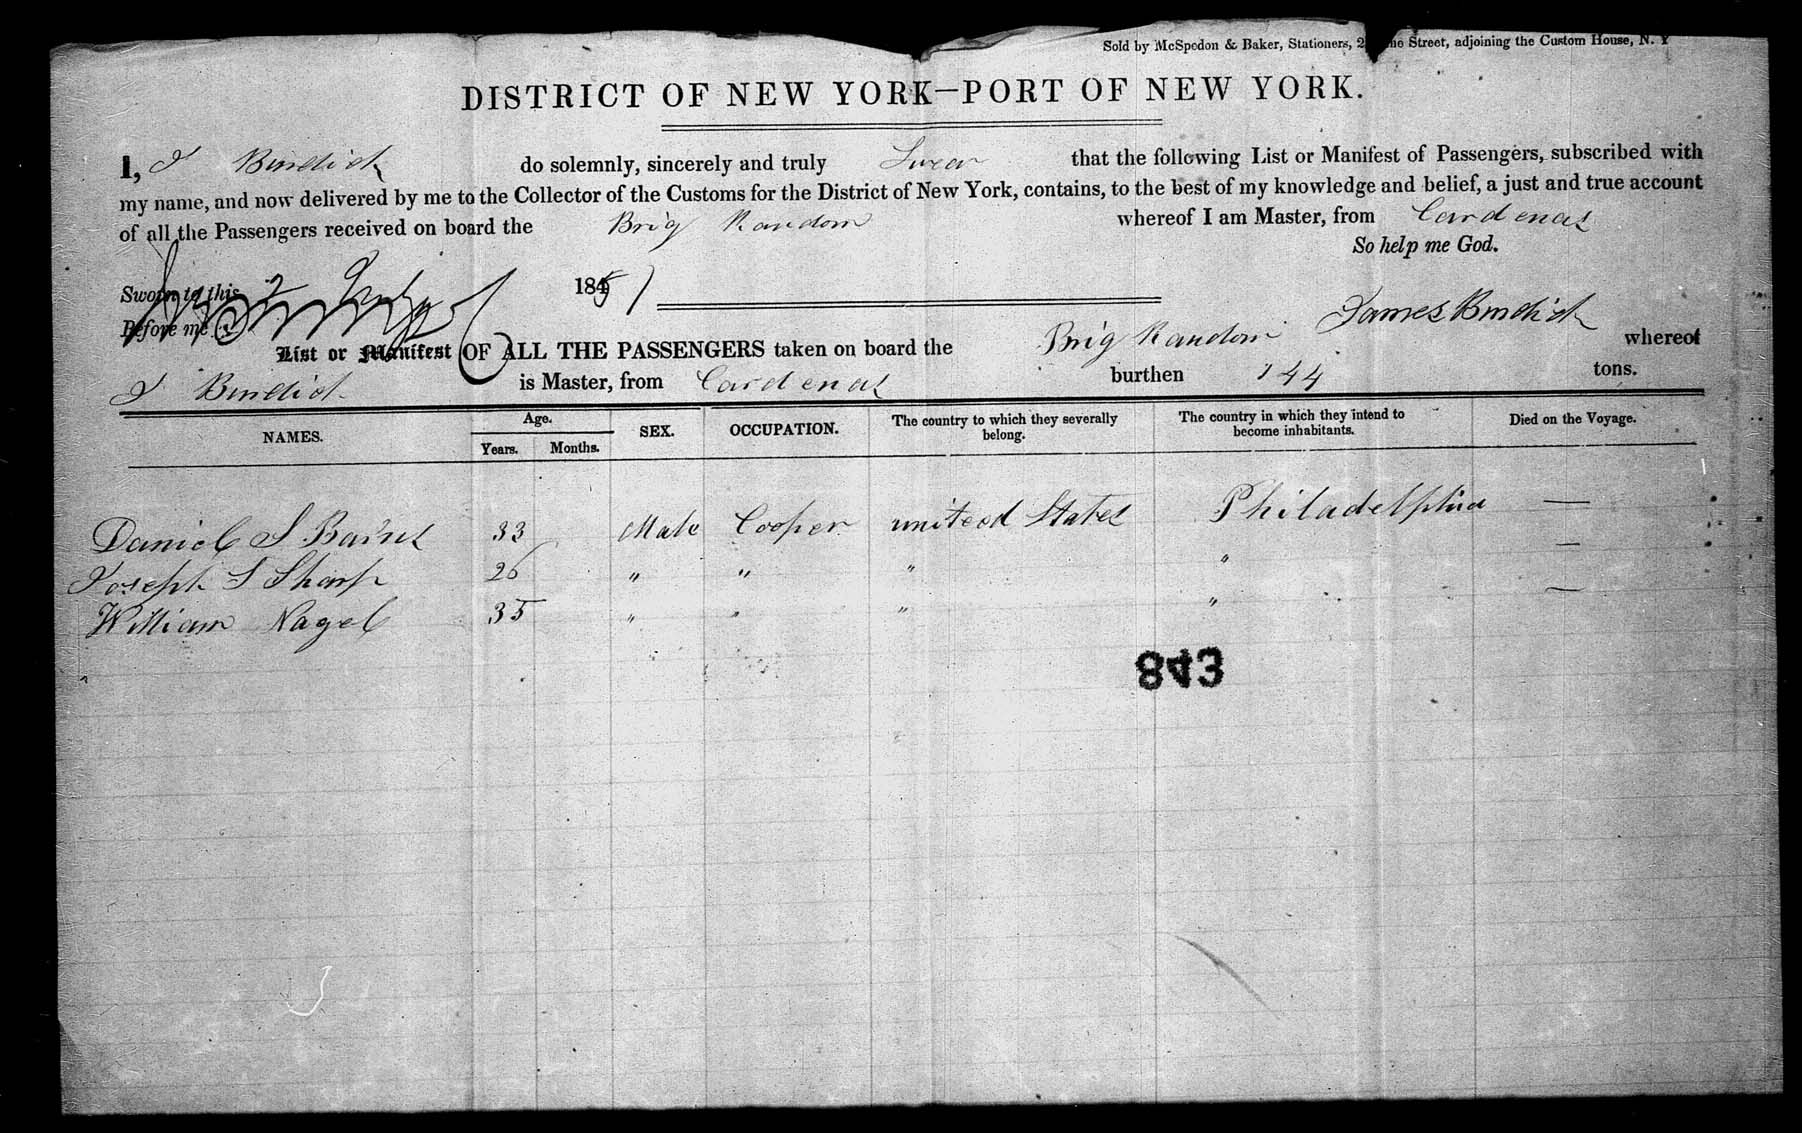 Sold by McSpedon & Baker, Stationers, 2 Street, adjoining the Custom House, N. Y
DISTRICT OF NEW YORK—PORT OF NEW YORK.
I, J Burdick do solemnly, sincerely and truly Swear that the following List or Manifest of Passengers, subscribed with
my name, and now delivered by me to the Collector of the Customs for the District of New York, contains, to the best of my knowledge and belief, a just and true account
of all the Passengers received on board the Brig Random whereof I am Master, from Cardenas
So help me God.
Sworn to this 2 July 1851
Before me
James Burdick
List or Manifest OF ALL THE PASSENGERS taken on board the Brig Random whereof
J Burdick is Master, from Cardenas burthen 144 tons.
NAMES. Age. Years. Months. SEX. OCCUPATION. The country to which they severally belong. The country in which they intend to become inhabitants. Died on the Voyage.
Daniel S 33 Male Cooper united States Philadelphia —
Joseph T Sharp 26 " " " " —
William Nagel 35 " " " " —
843